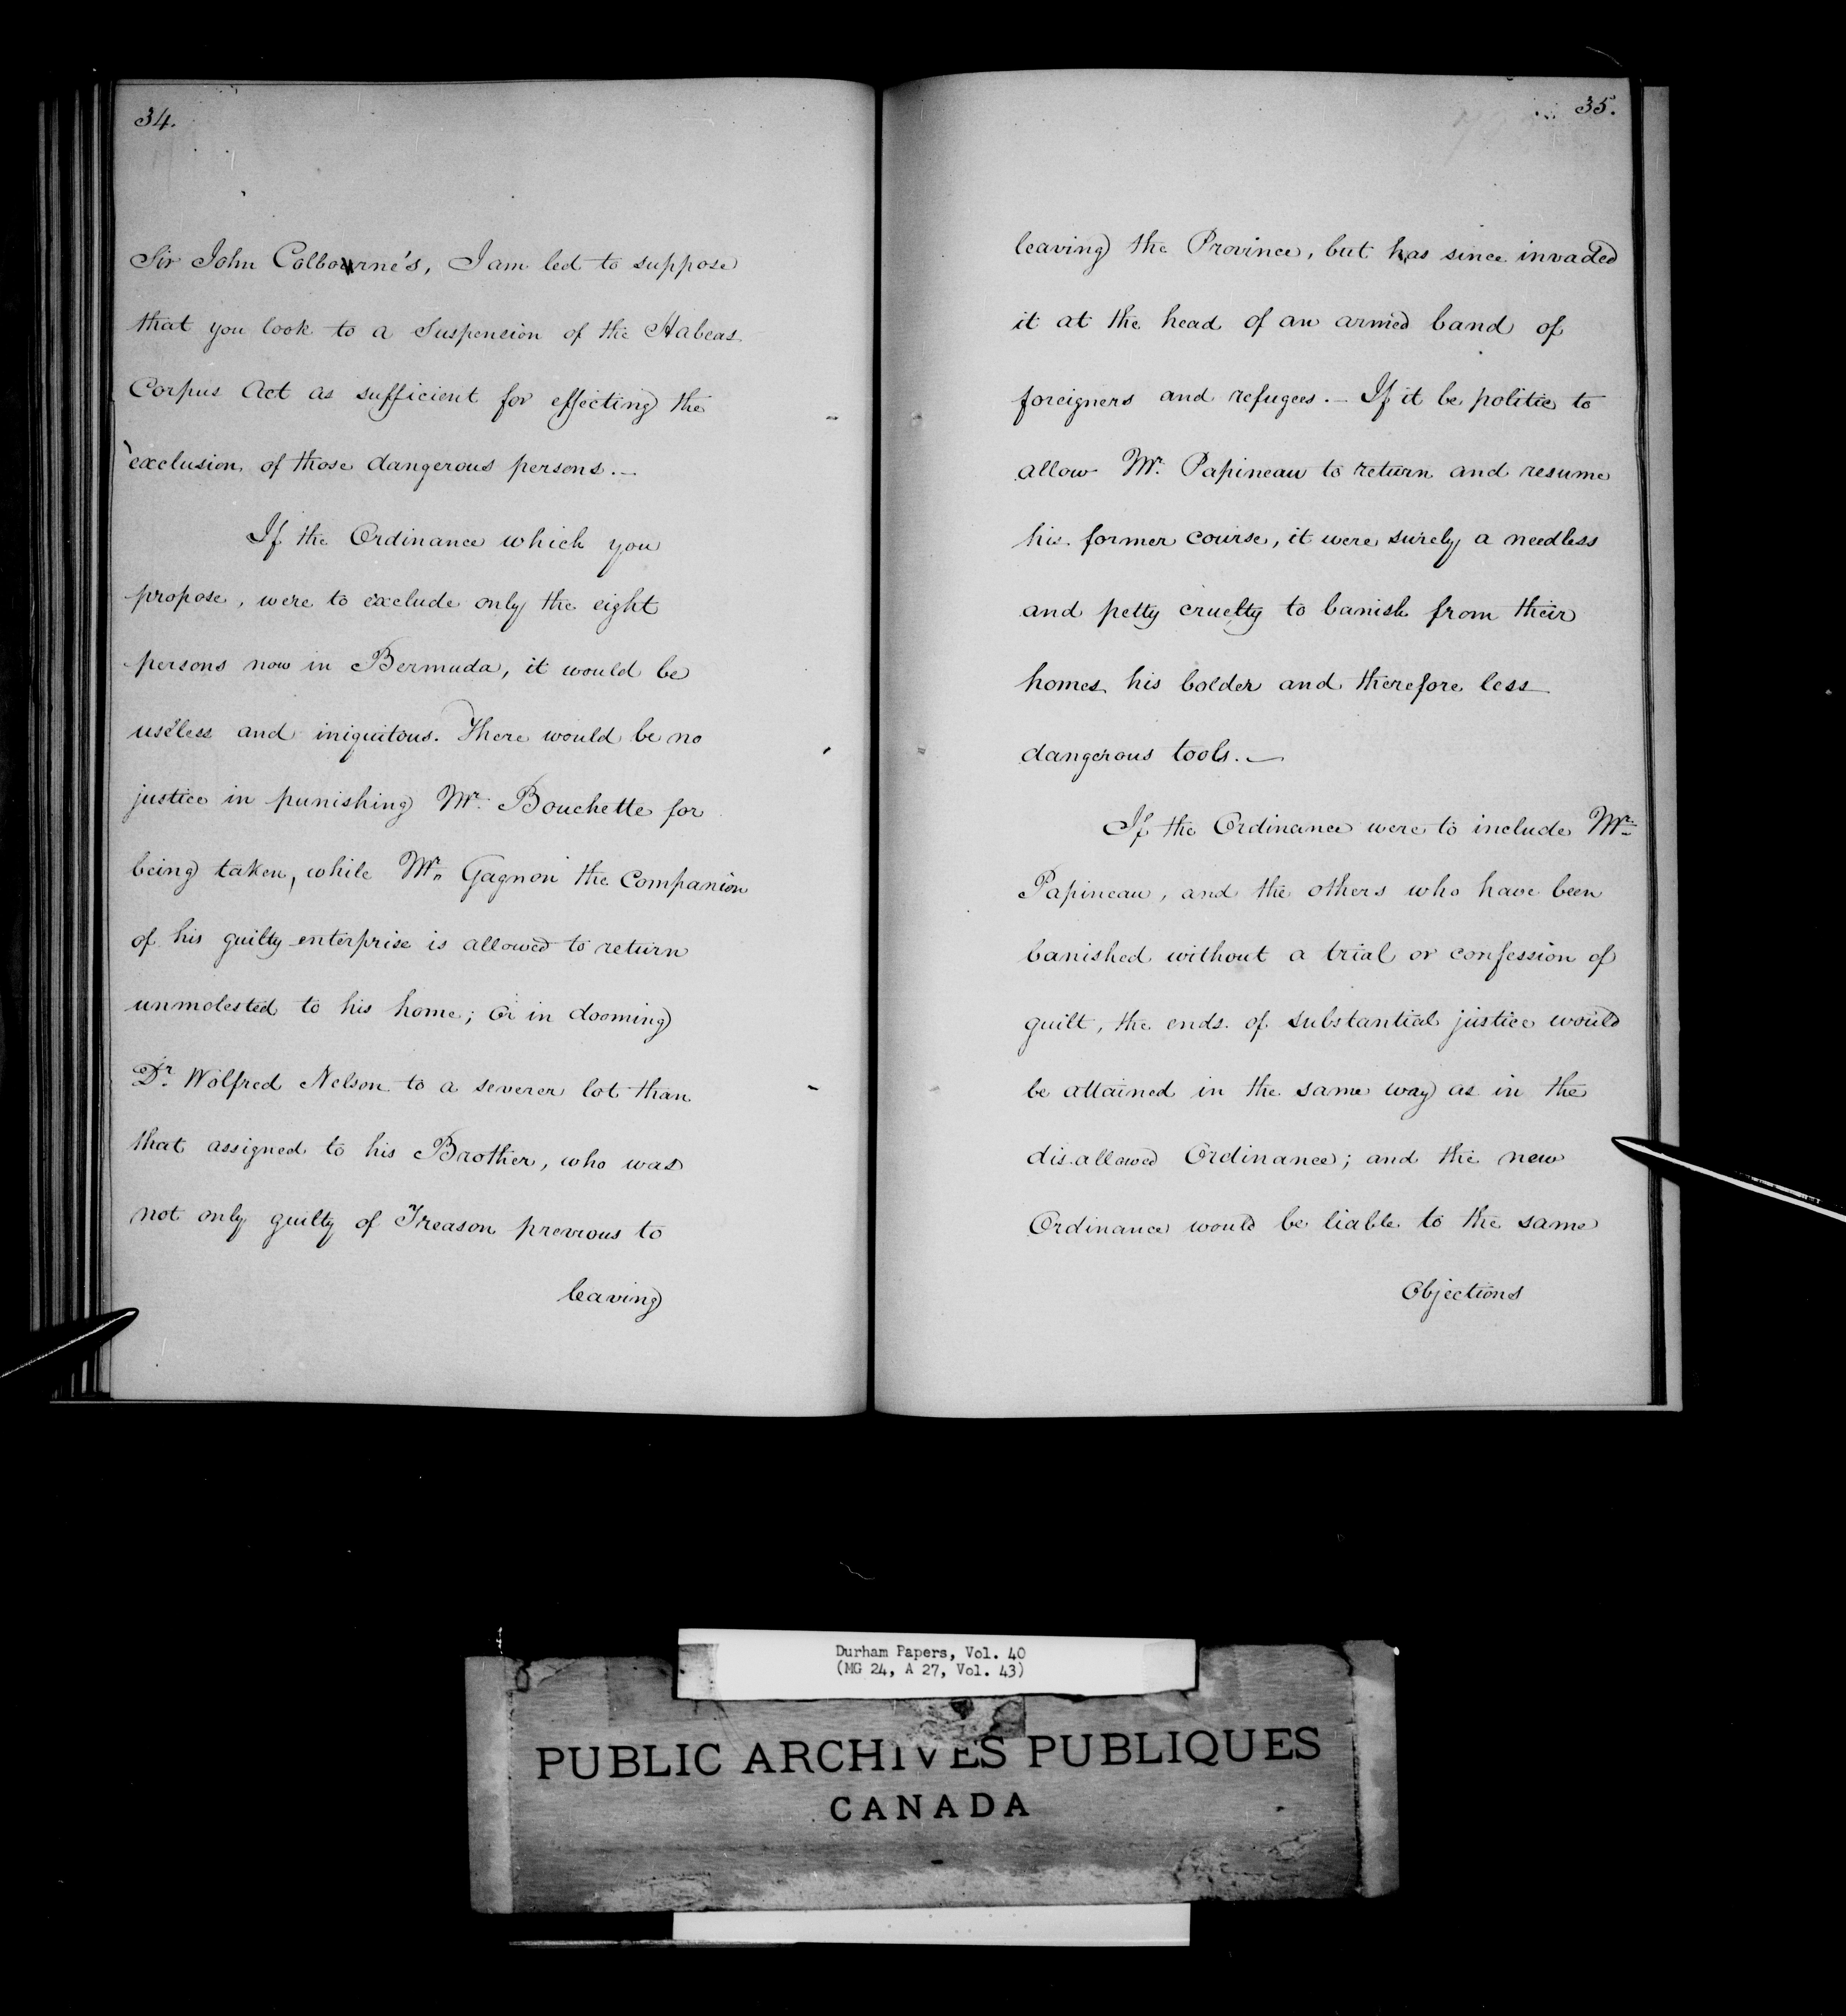 34.
Sir John Colbourne's, I am led to suppose
that you look to a Suspension of the Habeas
Corpus Act as sufficient for effecting the
exclusion of those dangerous persons. —
If the Ordinance which you
propose, were to exclude only the eight
persons now in Bermuda, it would be
useless and iniquitous. There would be no
justice in punishing Mr. Bouchette for
being taken, while Mr. Gagnon the Companion
of his guilty enterprise is allowed to return
unmolested to his home; or in dooming
Dr. Wolfred Nelson to a severer lot than
that assigned to his Brother, who was
not only guilty of Treason previous to
leaving
35.
leaving the Province, but has since invaded
it at the head of an armed band of
foreigners and refugees. — If it be politic to
allow Mr. Papineau to return and resume
his former course, it were surely a needless
and petty cruelty to banish from their
homes his bolder and therefore less
dangerous tools. —
If the Ordinance were to include Mr.
Papineau, and the others who have been
banished without a trial or confession of
guilt, the ends of substantial justice would
be attained in the same way as in the
disallowed Ordinance; and the new
Ordinance would be liable to the same
Objections
Durham Papers, Vol. 40
(MG 24, A 27, Vol. 43)
PUBLIC ARCHIVES PUBLIQUES
CANADA